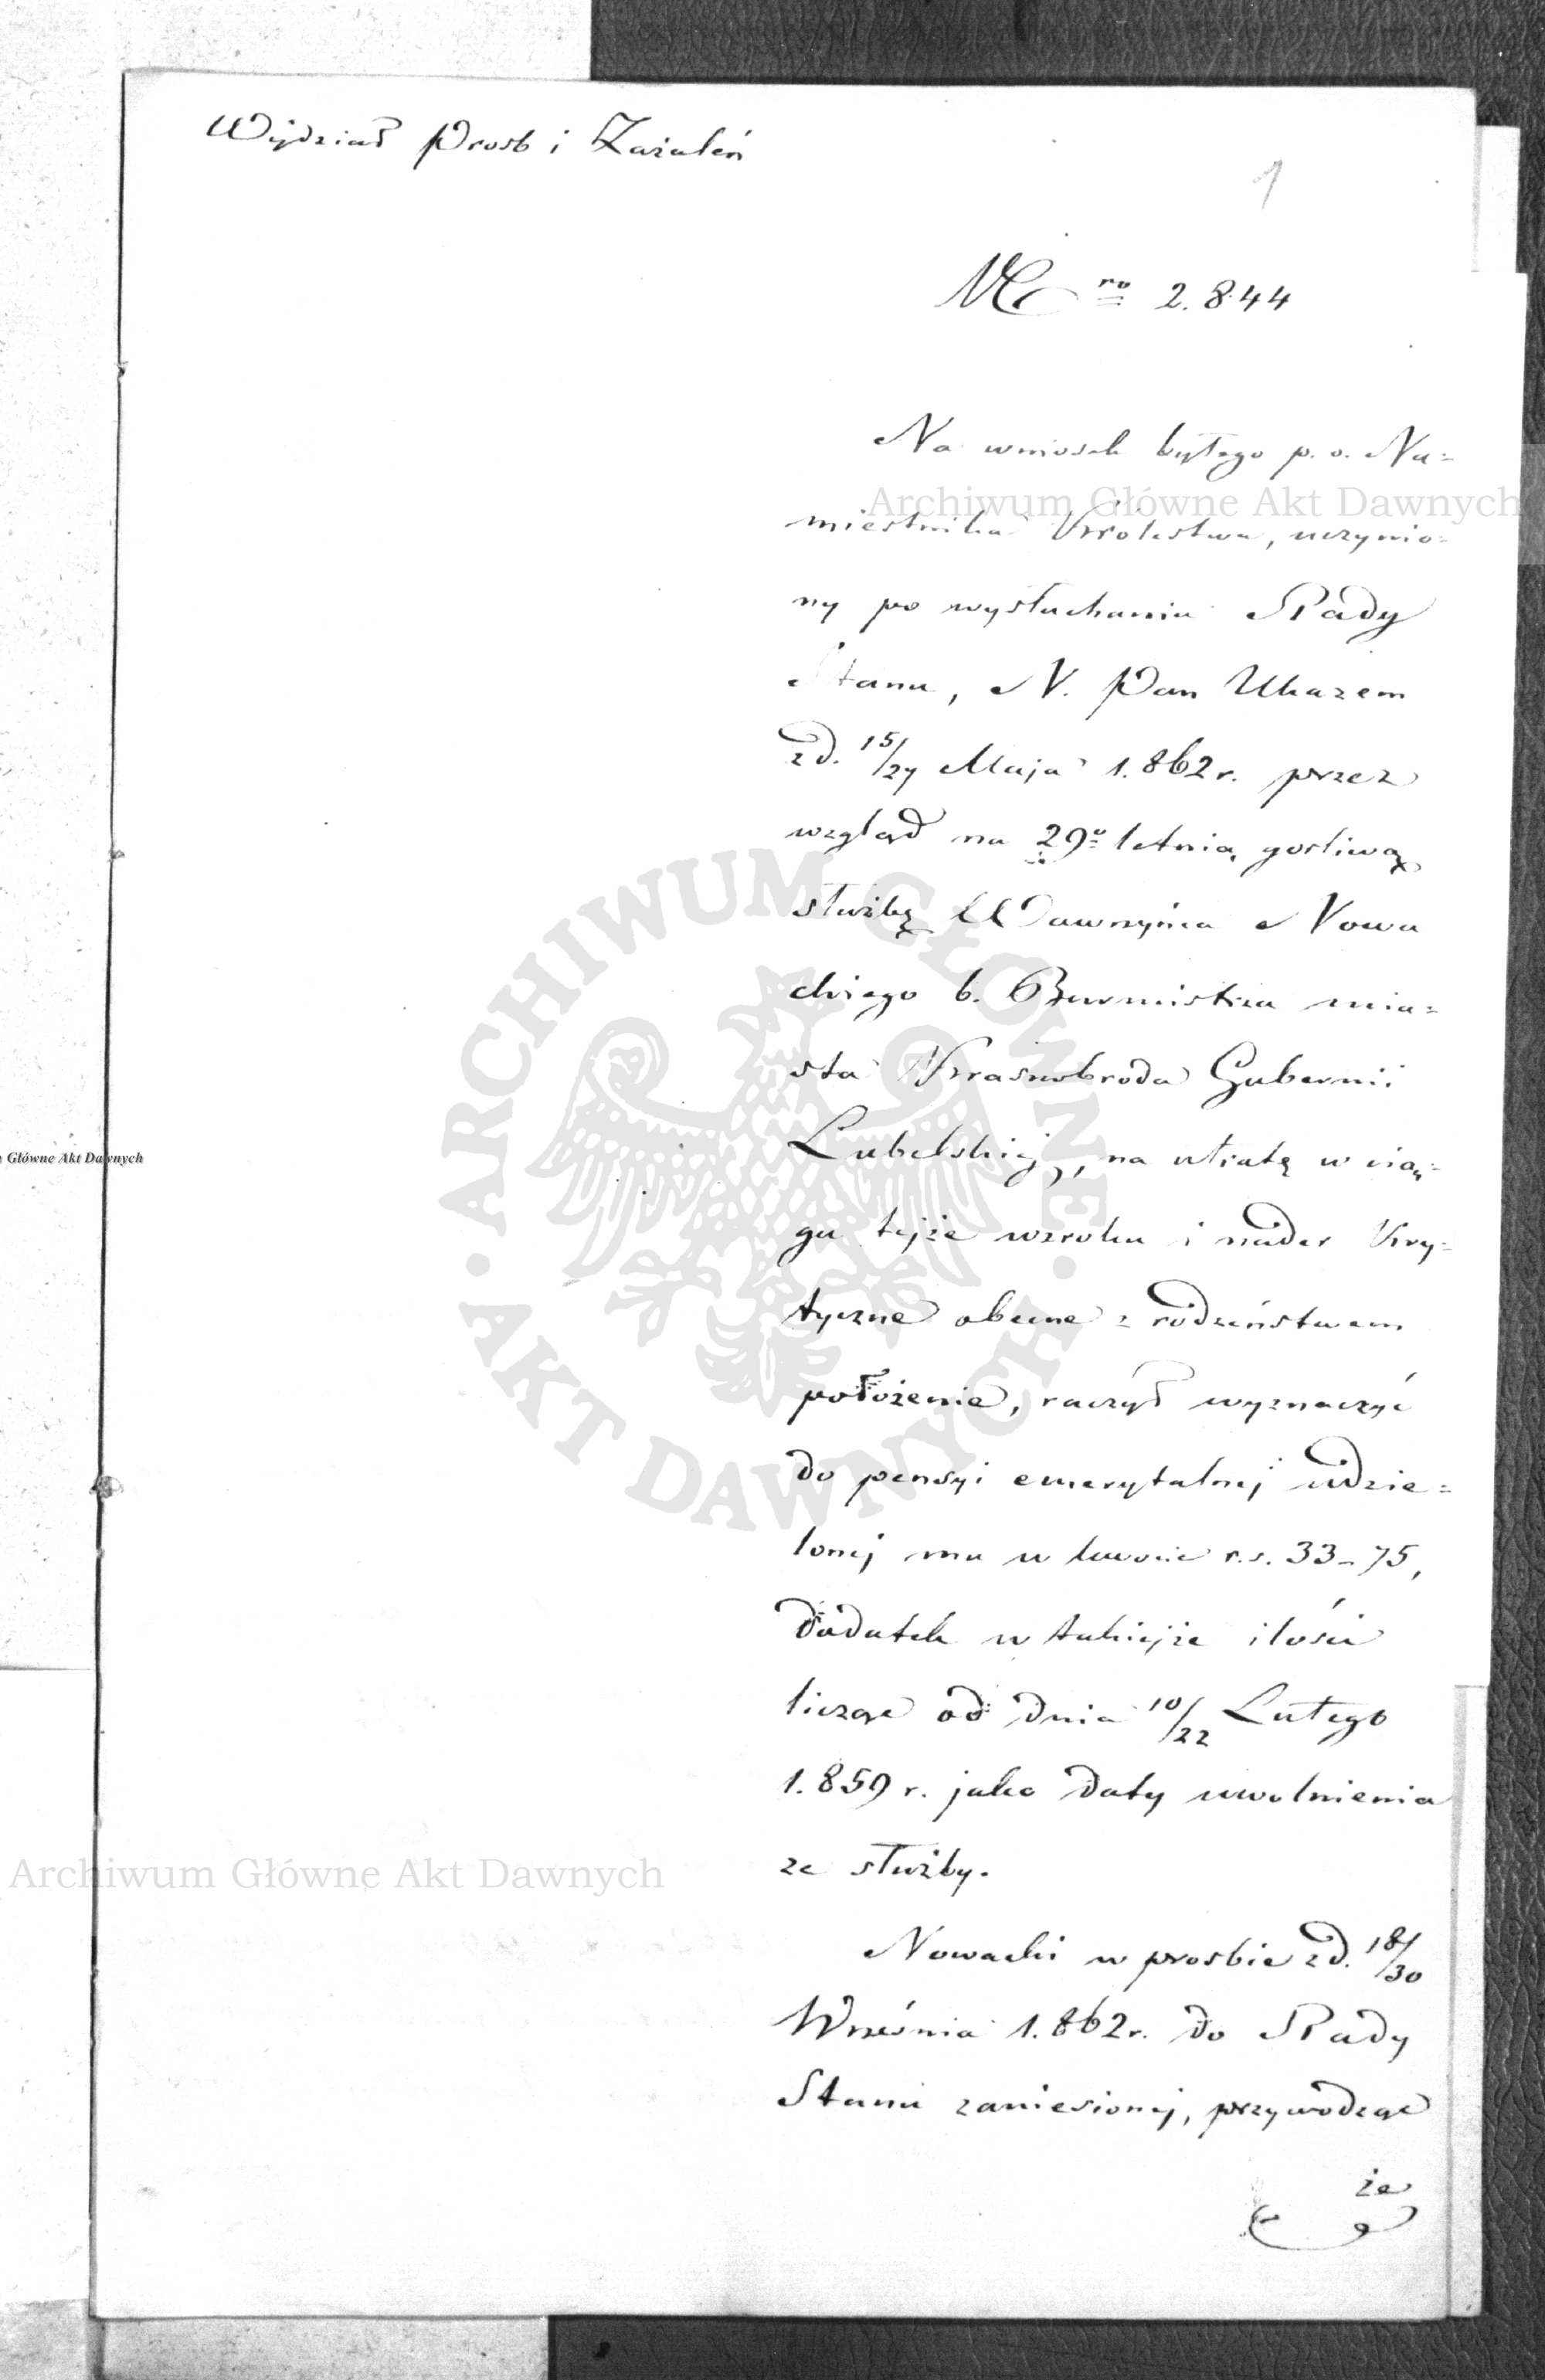 Wydział Prosb i Zażaleń
1
Nro 2.844
Na wniosek byłego p. o. Na=
Archiwum Główne Akt Dawnych
miestnika Królestwa, uczynio=
ny po wysłuchaniu Rady
Stanu, N. Pan Ukazem
z d. 15/27 Maja 1.862 r. przez
wzgląd na 29o letnią gorliwą
służbę Wawrzyńca Nowa
ckiego b. Burmistrza mia=
sta Krasnobroda Gubernii
Lubelskiej, na utratę w cią=
gu tejże wzroku i nader kry=
tyczne obecne z rodzeństwem
położenie, raczył wyznaczyć
do pensyi emerytalnej udzie=
lonej mu w kwocie r.s. 33-75,
dodatek w takiejże ilości
licząc od dnia 10/22 Lutego
1.859 r. jako daty uwolnienia
ze służby.
Nowacki w prosbie z d. 18/30
Września 1.862 r. do Rady
Stanu zaniesionej, przywodząc
że
ARCHIWUM GŁÓWNE
AKT DAWNYCH
Główne Akt Dawnych
Archiwum Główne Akt Dawnych